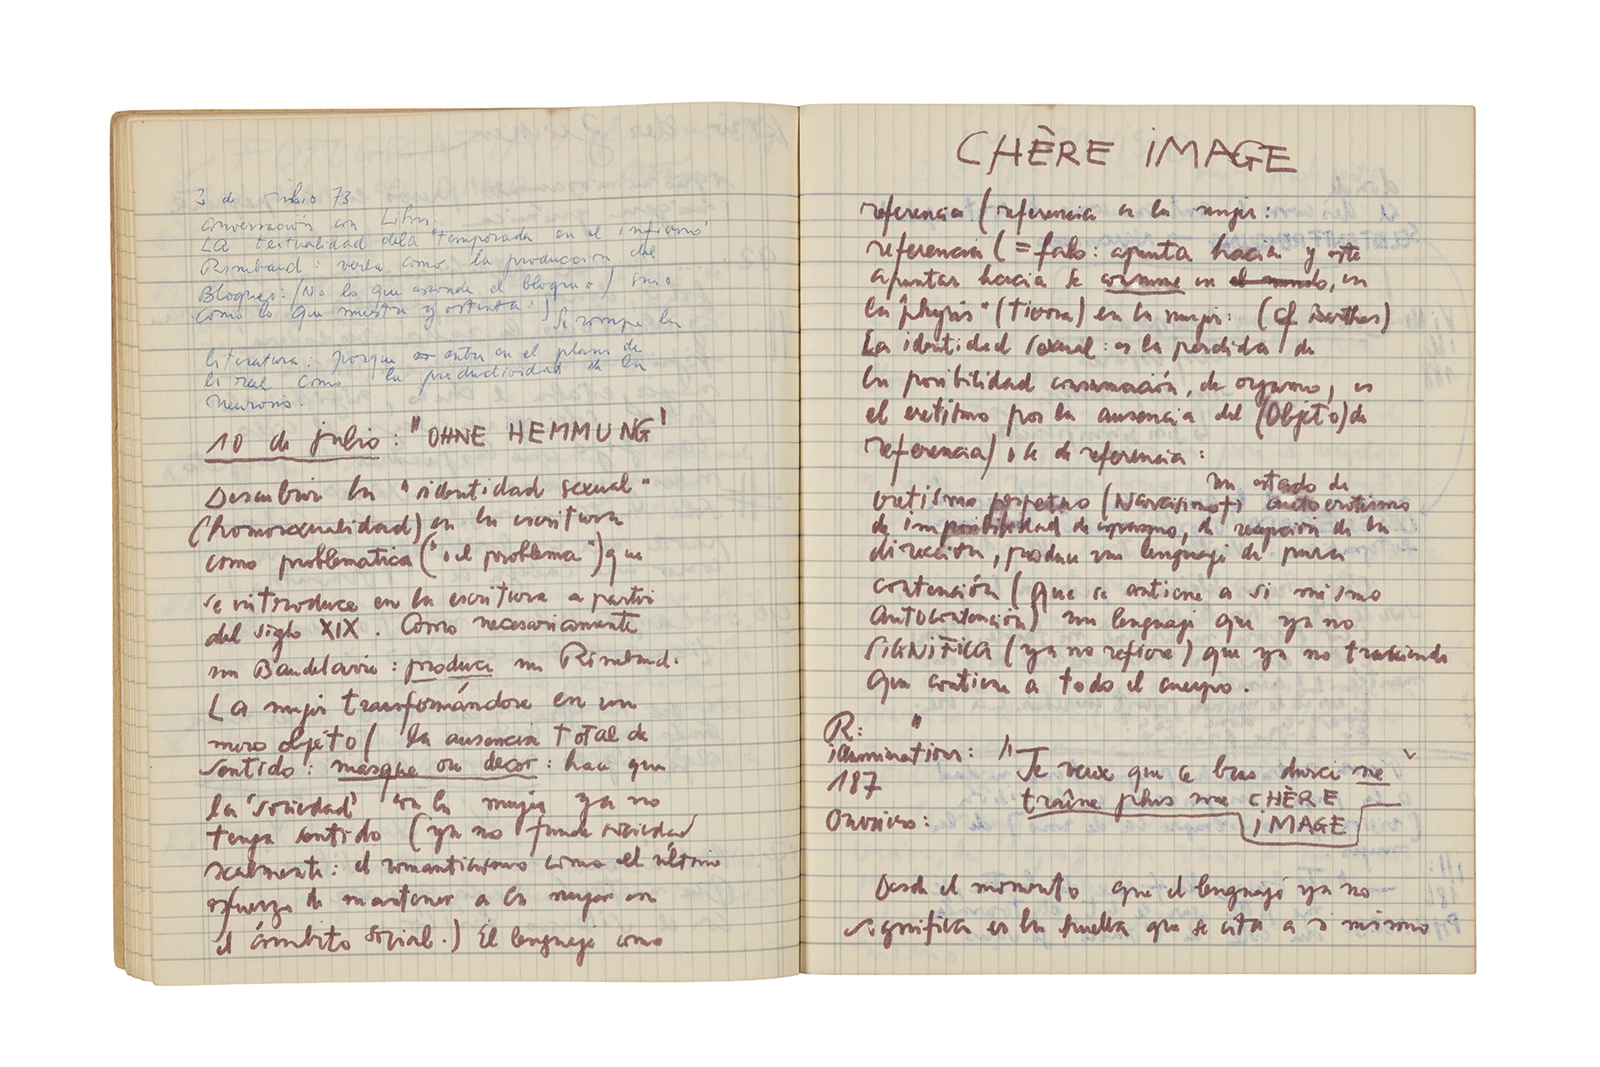 3 de julio 73
conversación con Lihn:
LA textualidad de la "temporada en el infierno"
Rimbaud: verla como la producción del
Bloqueo: (No lo que esconde el bloqueo) sino
como lo que muestra y ostenta:) Se rompe la
literatura: porque entra en el plano de
lo real como la productividad de la
neurosis.
10 de julio: "OHNE HEMMUNG"
Descubrir la "identidad sexual"
(homosexualidad) en la escritura
como problematica ("el problema") que
se introduce en la escritura a partir
del siglo XIX. Como necesariamente
un Baudelaire: produce un Rimbaud.
LA mujer transformándose en un
mero objeto / la ausencia total de
sentido: masque ou decor: hace que
la "sociedad" con la mujer ya no
tenga sentido (ya no funde sociedad
realmente: el romanticismo como el último
esfuerzo de mantener a la mujer en
el ámbito social.) El lenguaje como
CHÈRE IMAGE
referencia (referencia es la mujer:
referencia (= falo: apunta hacia y este
apuntar hacia se consume en el mundo, en
la "physis" (tierra) en la mujer: (cf Barthes)
La identidad sexual: es la perdida de
la posibilidad consumación, de orgasmo, es
el eretismo por la ausencia del (Objeto) de
referencia) de referencia:
eretismo perpetuo (Narcisimo) un estado de autoerotismo
de imposibilidad de orgasmo, de recepción de la
dirección, produce un lenguaje de pura
contención (que se contiene a si mismo
Autocontención) un lenguaje que ya no
SIGNIFICA (ya no refiere) que ya no trasciende
que contiene a todo el cuerpo.
R: "
illuminations: "Je veux que ce bras durci ne
187 traîne plus une CHÈRE
IMAGE
Desde el momento que el lenguaje ya no
significa es la huella que se cita a si mismo